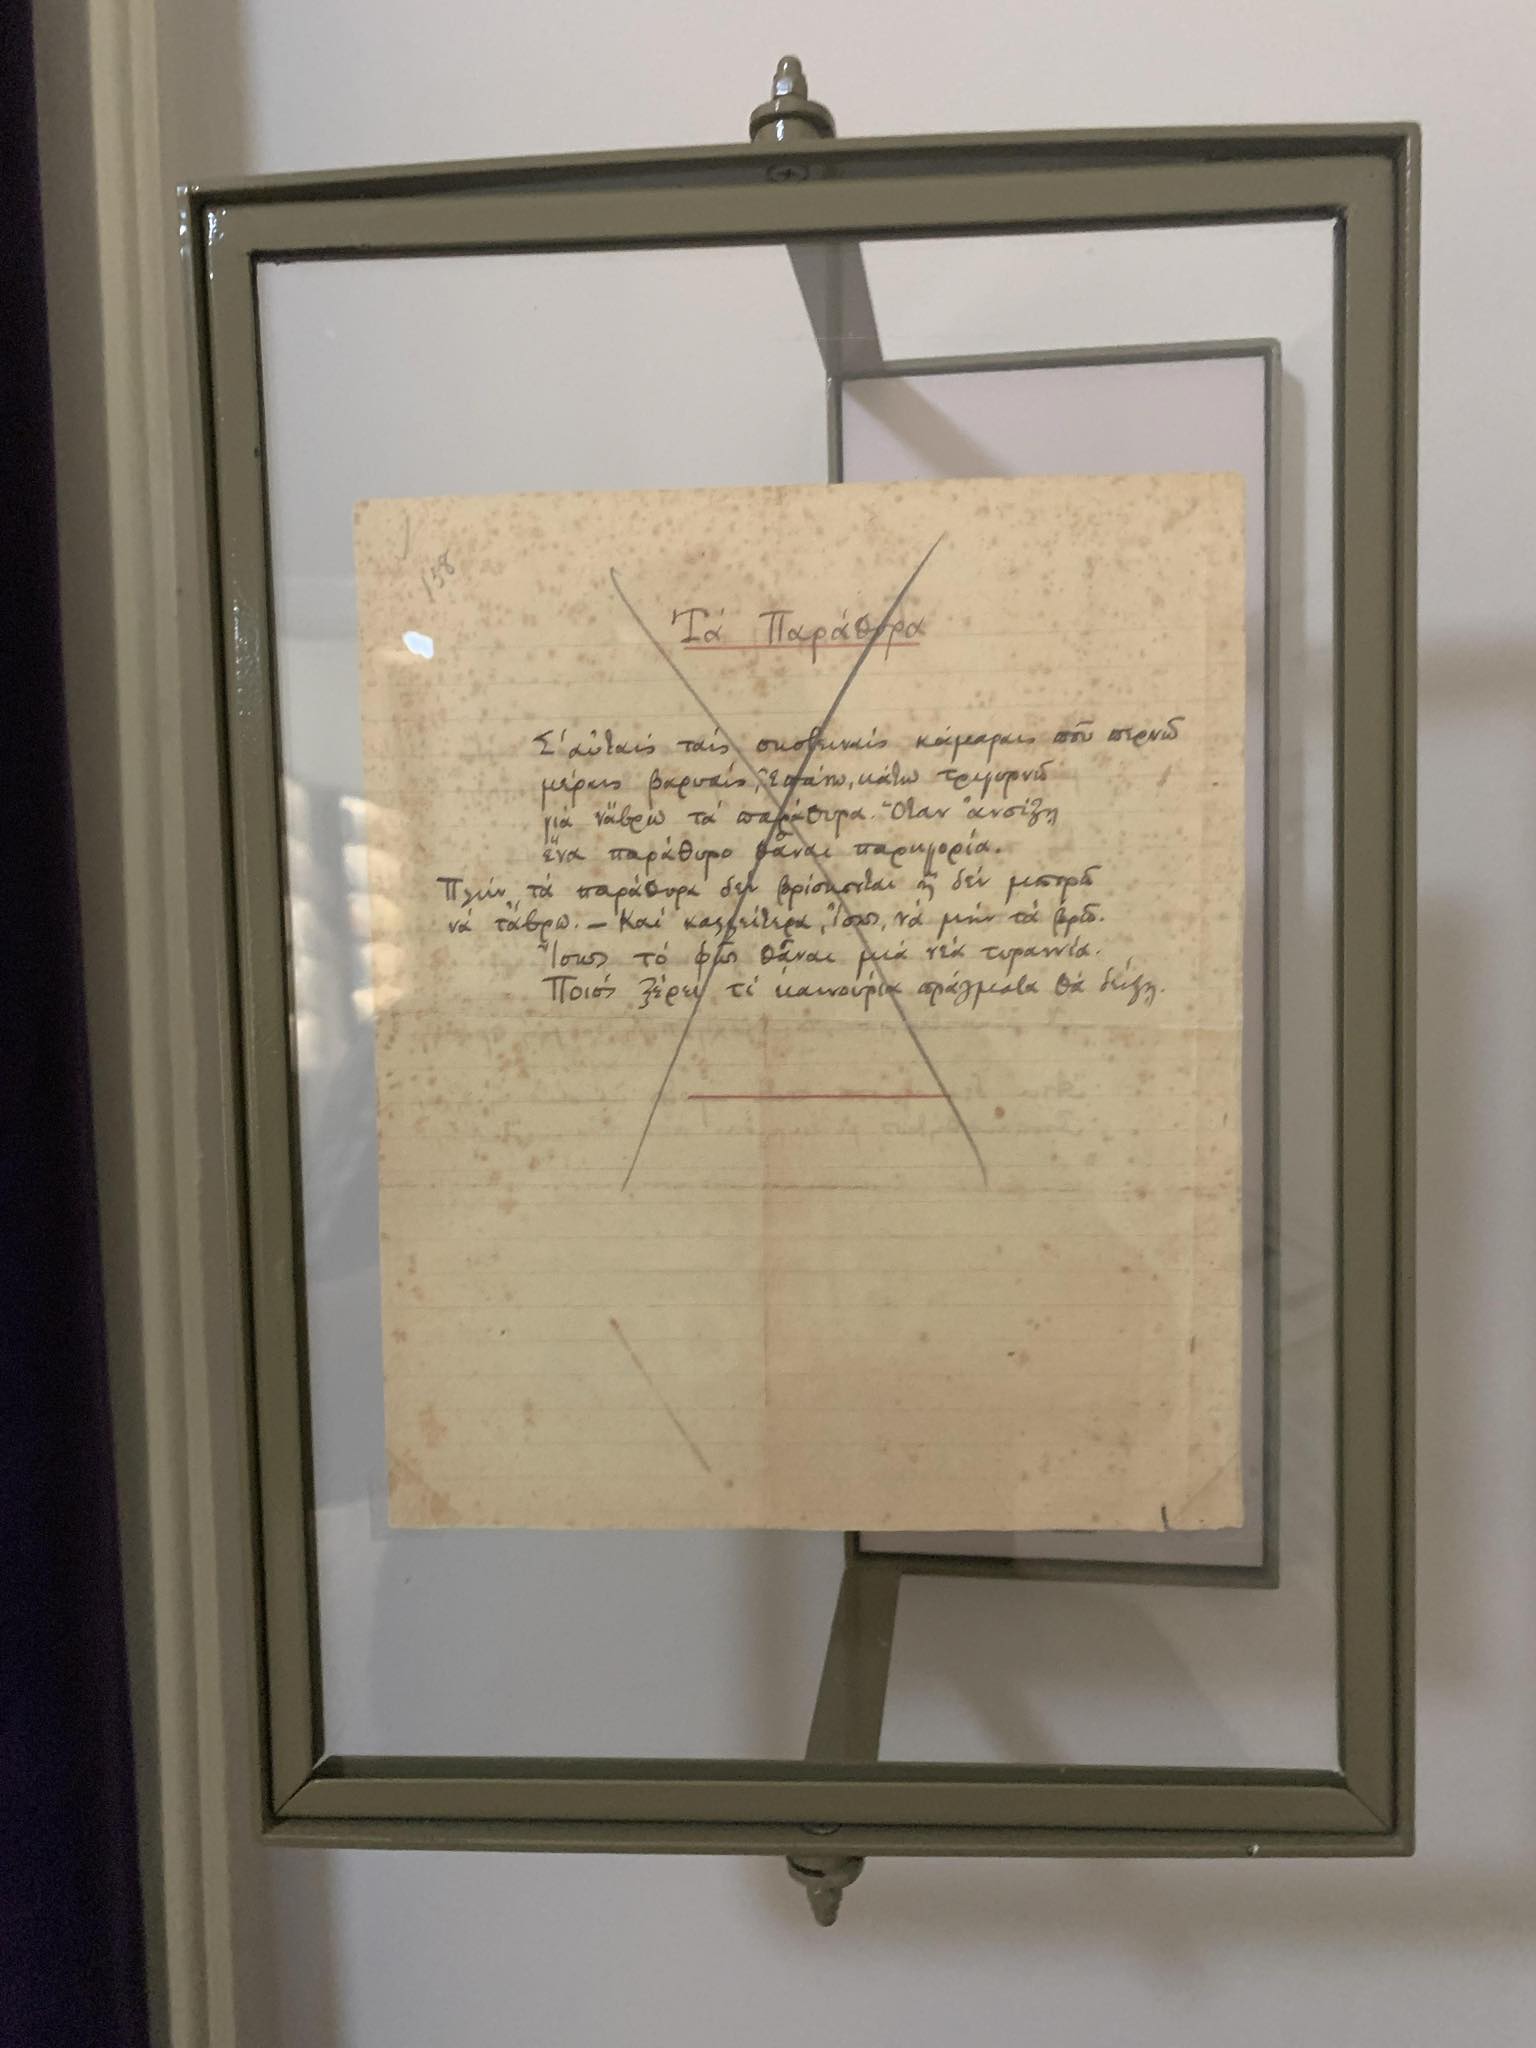 158
Τά Παράθυρα
Σ' αὐταίς ταίς σκοτειναίς κάμαραις ποῦ περνῶ
μέραις βαρυαίς, ἐπάνω, κάτω τριγυρνῶ
γιά νἄβρω τά παράθυρα. Ὅταν ἀνοίξῃ
ἕνα παράθυρο θἆναι παρηγορία.
Πλήν τά παράθυρα δέν βρίσκονται ἤ δέν μπορῶ
νά τἄβρω. — Καί καλλείτερα, ἴσως, νά μήν τά βρῶ.
Ἴσως τό φῶς θἆναι μιά νέα τυραννία.
Ποιός ξέρει τί καινούρια πράγματα θά δείξῃ.